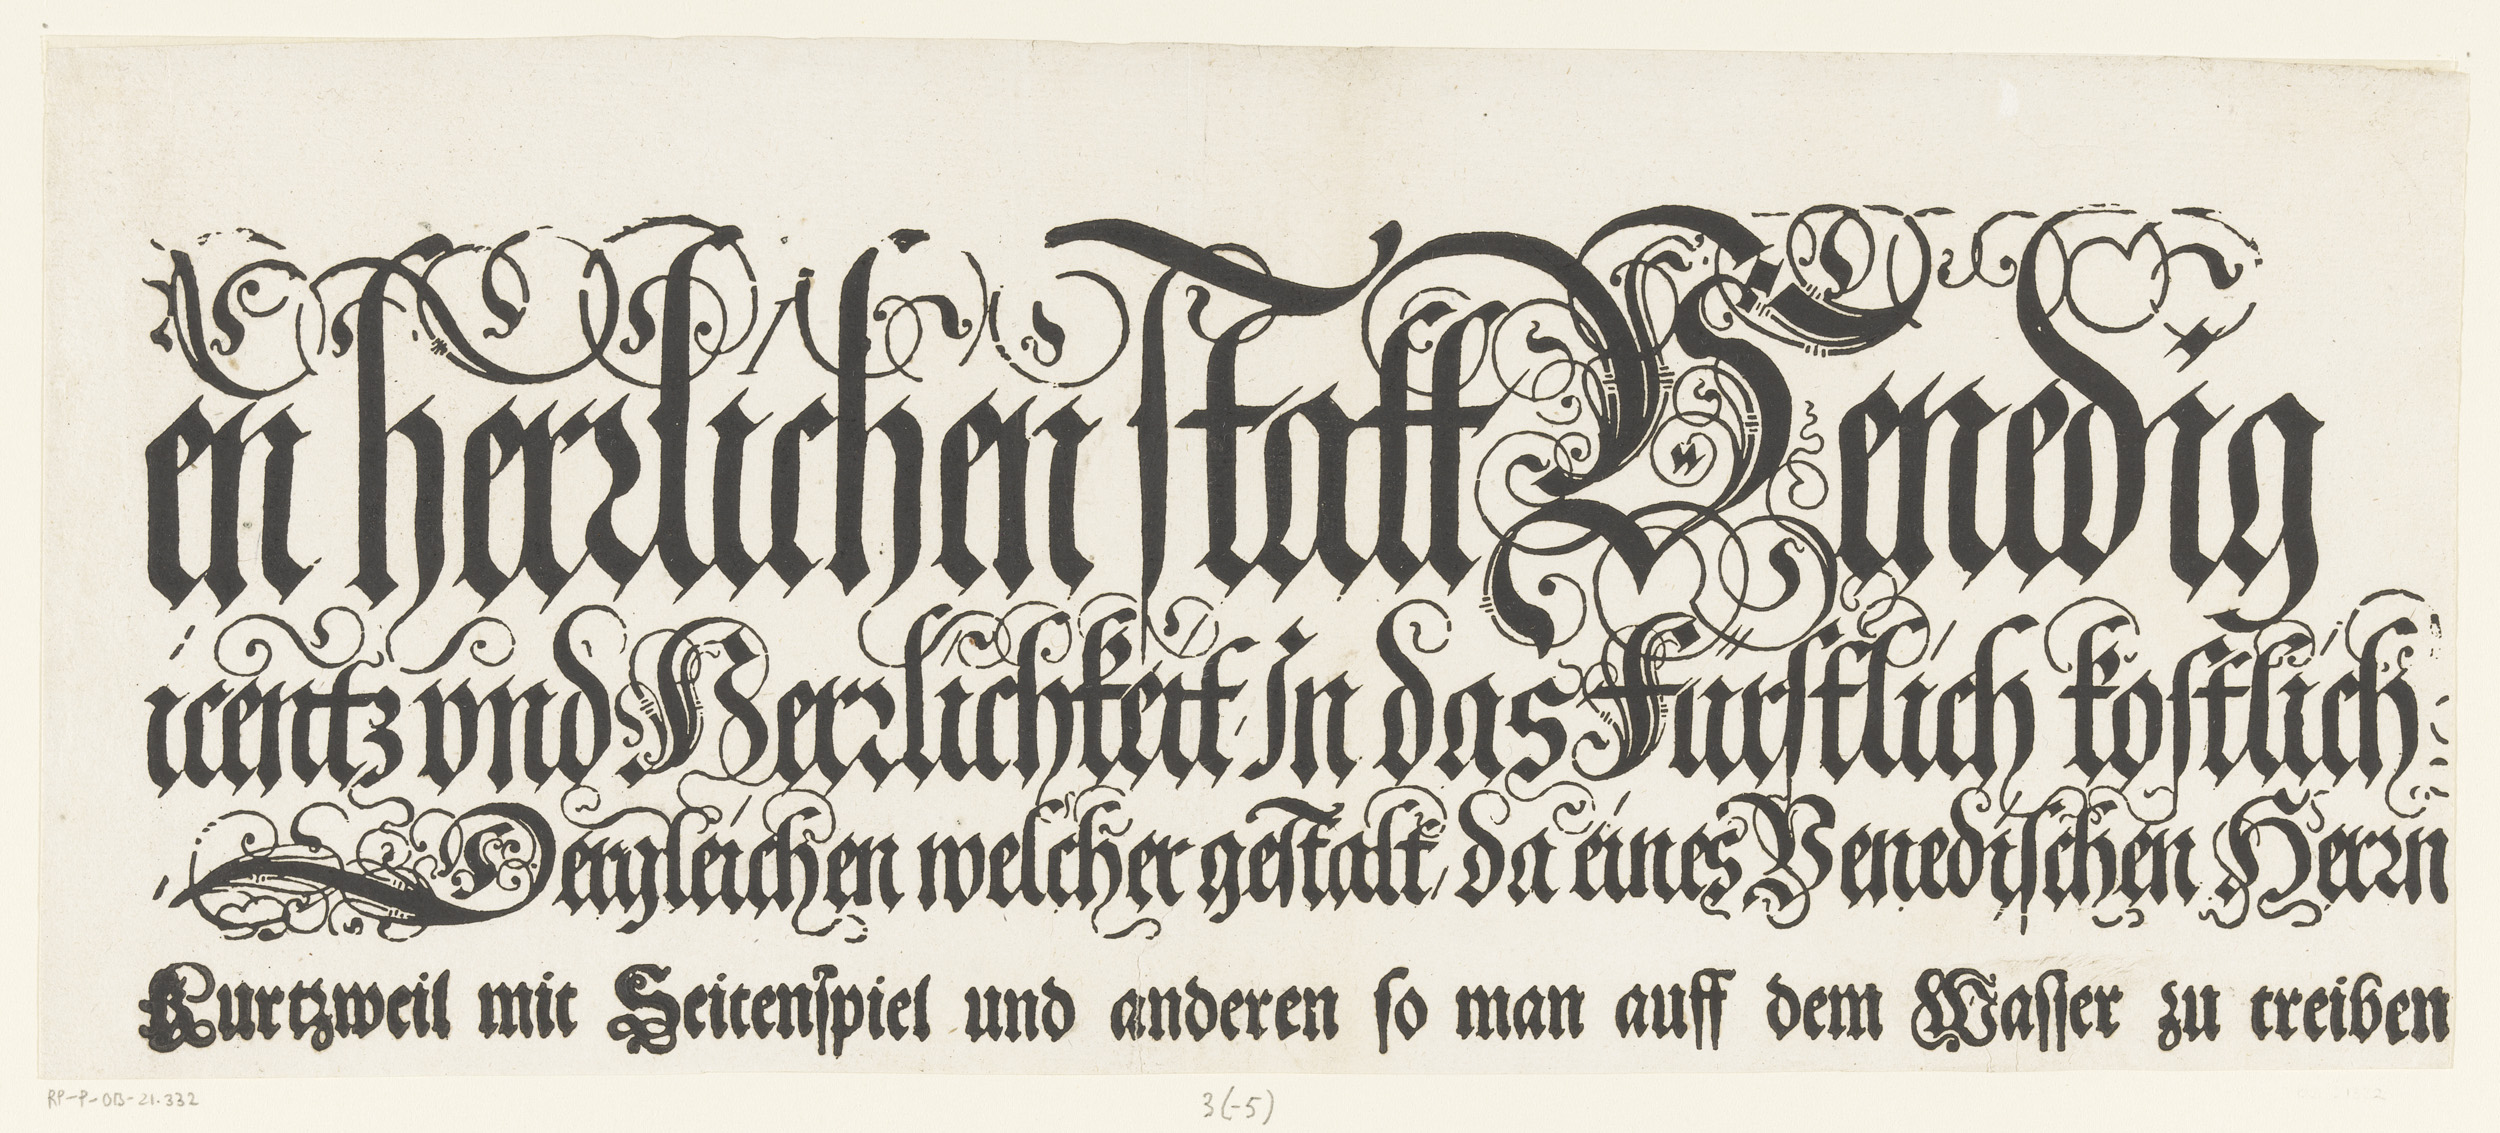 en herrlichen statt Venedig
icentz vnd Herrlichkeit / in das Fürstlich kostlich
/ Dergleichen welcher gestalt / da eines Venedischen Herrn
Kurtzweil mit Seitenspiel und anderen so man auff dem Wasser zu treiben
RP-P-OB-21.332
3(-5)